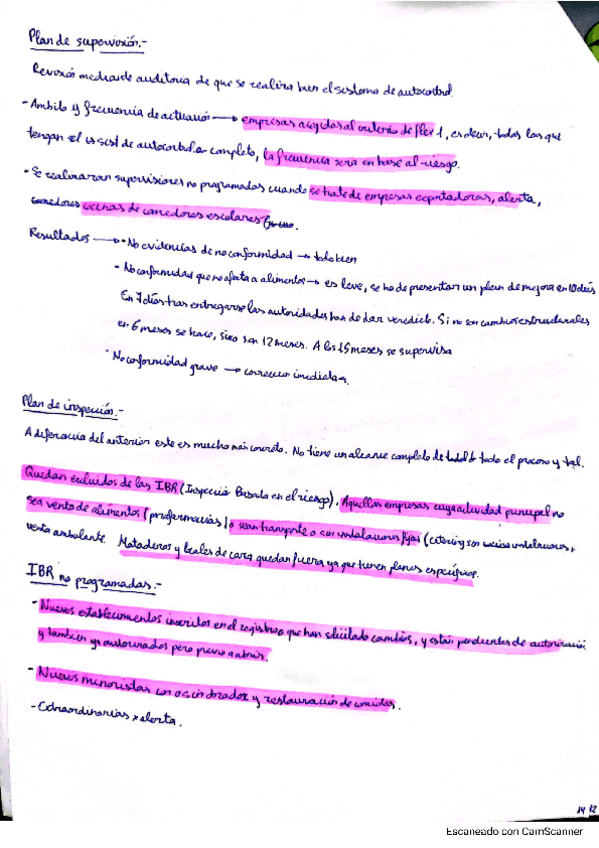 Plan de supervisión.-
Revisión mediante auditoria de que se realiza bien el sistema de autocontrol.
- Ambito y frecuencia de actuación → empresas acogidas al criterio de flex 1, es decir, todas las que
tengan el sist de autocontrol completo, la frecuencia será en base al riesgo.
- Se realizaran supervisiones no programadas cuando se trate de empresas exportadoras, alerta,
comedores cocinas de comedores escolares
Resultados → - No evidencias de no conformidad → todo bien
- No conformidad que no afecta a alimentos → es leve, se ha de presentar un plan de mejora en 10 días
En 7 días tras entregarse las autoridades han de dar veredicto. Si no son cambios estructurales
en 6 meses se hace, sino son 12 meses. A los 15 meses se supervisa
No conformidad grave → correccion inmediata.
Plan de inspección.-
A diferencia del anterior este es mucho más concreto. No tiene un alcance completo de todo el proceso y tal.
Quedan excluidos de las IBR (Inspección Basada en el riesgo). Aquellas empresas cuya actividad principal no
sea venta de alimentos (parafarmacias) o sean transporte o sin instalaciones fijas (catering sin cocina instalaciones,
venta ambulante. Mataderos y locales de caza quedan fuera ya que tienen planes específicos.
IBR no programadas.-
- Nuevos establecimientos inscritos en el registro o que han solicitado cambios, y están pendientes de autorización
y tambien ya autorizados pero previo a abrir.
- Nuevos minoristas con o sin obrador y restauración de comidas.
- Extraordinarias x alerta.
Escaneado con CamScanner